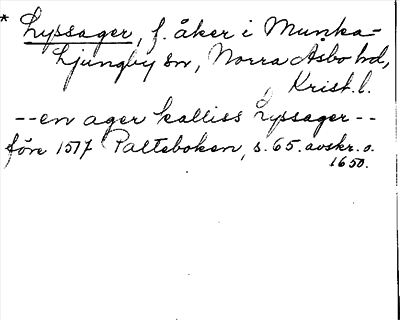 * Lyssager, f. åker i Munka-
Ljungby sn, Norra Åsbo hd,
Krist. l.
-- en ager kalliss Lyssager --
före 1517 Palteboken, s. 65. avskr. o.
1650.